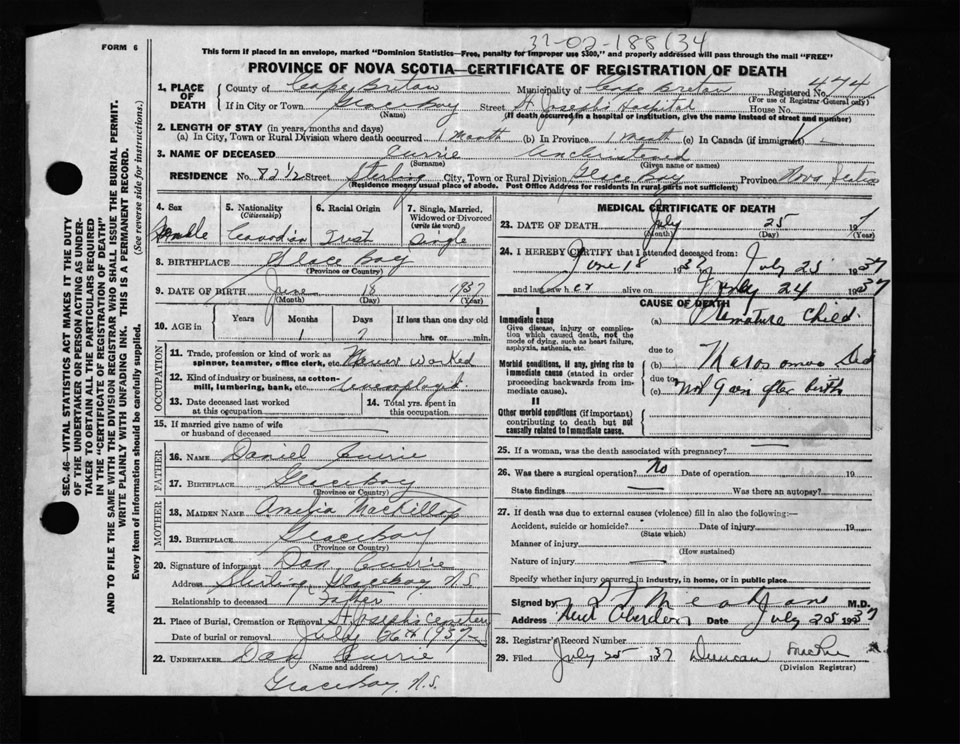 37-02-188(34
FORM 6
This form if placed in an envelope, marked "Dominion Statistics—Free, penalty for improper use $300," and properly addressed will pass through the mail "FREE"
PROVINCE OF NOVA SCOTIA—CERTIFICATE OF REGISTRATION OF DEATH
1. PLACE OF DEATH
County of Cape Breton Municipality of Cape Breton Registered No. 474
(For use of Registrar-General only)
If in City or Town Glace Bay Street St. Joseph's Hospital House No.
(Name) (If death occurred in a hospital or institution, give the name instead of street and number)
2. LENGTH OF STAY (in years, months and days)
(a) In City, Town or Rural Division where death occurred 1 Month (b) In Province 1 Month (c) In Canada (if immigrant) —
3. NAME OF DECEASED Currie Unchristened
(Surname) (Given name or names)
RESIDENCE No. 82 1/2 Street Sterling City, Town or Rural Division Glace Bay Province Nova Scotia
(Residence means usual place of abode. Post Office Address for residents in rural parts not sufficient)
4. Sex Female
5. Nationality (Citizenship) Canadian
6. Racial Origin
7. Single, Married, Widowed or Divorced (write the word) Single
8. BIRTHPLACE Glace Bay
(Province or Country)
9. DATE OF BIRTH June 18 1937
(Month) (Day) (Year)
10. AGE in Years Months 1 Days 7 If less than one day old hrs. or min.
OCCUPATION
11. Trade, profession or kind of work as spinner, teamster, office clerk, etc. Never worked
12. Kind of industry or business, as cotton-mill, lumbering, bank, etc.
13. Date deceased last worked at this occupation
14. Total yrs. spent in this occupation
15. If married give name of wife or husband of deceased —
FATHER
16. NAME Daniel Currie
17. BIRTHPLACE Glace Bay
(Province or Country)
MOTHER
18. MAIDEN NAME Amelia MacKillop
19. BIRTHPLACE Glace Bay
(Province or Country)
20. Signature of informant Dan Currie
Address Sterling Glace Bay N.S
Relationship to deceased Father
21. Place of Burial, Cremation or Removal St. Josephs Cemetery
Date of burial or removal July 26th 1937
22. UNDERTAKER Dan Currie
(Name and address)
Glace Bay N.S.
MEDICAL CERTIFICATE OF DEATH
23. DATE OF DEATH July 25 19
(Month) (Day) (Year)
24. I HEREBY CERTIFY that I attended deceased from:
June 18 1937 July 25 1937
and last saw her alive on July 24 1937
CAUSE OF DEATH
I
Immediate cause
Give disease, injury or complication which caused death, not the mode of dying, such as heart failure, asphyxia, asthenia, etc.
(a) Premature Child
due to
Morbid conditions, if any, giving rise to immediate cause (stated in order proceeding backwards from immediate cause).
(b)
due to
(c) not Gain after birth
II
Other morbid conditions (if important) contributing to death but not causally related to immediate cause.
25. If a woman, was the death associated with pregnancy? —
26. Was there a surgical operation? No Date of operation 19
State findings — Was there an autopsy?
27. If death was due to external causes (violence) fill in also the following:—
Accident, suicide or homicide? Date of injury 19
(State which)
Manner of injury
(How sustained)
Nature of injury —
Specify whether injury occurred in industry, in home, or in public place
Signed by M.D.
Address New Aberdeen Date July 25 1937
28. Registrar's Record Number
29. Filed July 25 1937 Duncan
(Division Registrar)
SEC. 46—VITAL STATISTICS ACT MAKES IT THE DUTY
OF THE UNDERTAKER OR PERSON ACTING AS UNDER-
TAKER TO OBTAIN ALL THE PARTICULARS REQUIRED
IN THE "CERTIFICATE OF REGISTRATION OF DEATH"
AND TO FILE THE SAME WITH THE DIVISION REGISTRAR WHO SHALL ISSUE THE BURIAL PERMIT.
WRITE PLAINLY WITH UNFADING INK. THIS IS A PERMANENT RECORD.
Every item of information should be carefully supplied. (See reverse side for instructions.)